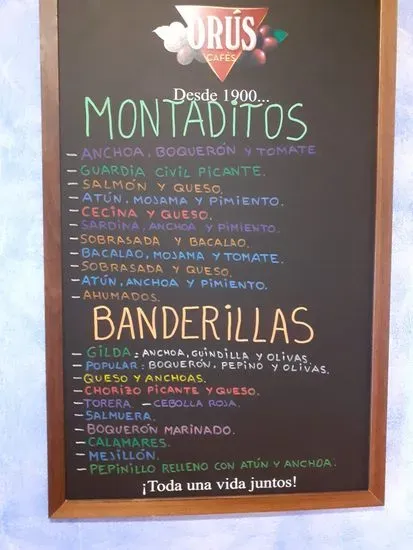 ORÚS
CAFÉS
Desde 1900...
MONTADITOS
- ANCHOA, BOQUERÓN Y TOMATE
- GUARDIA CIVIL PICANTE.
- SALMÓN Y QUESO.
- ATÚN, MOJAMA Y PIMIENTO.
- CECINA Y QUESO.
- SARDINA, ANCHOA Y PIMIENTO.
- SOBRASADA Y BACALAO.
- BACALAO, MOJAMA Y TOMATE.
- SOBRASADA Y QUESO.
- ATÚN, ANCHOA Y PIMIENTO.
- AHUMADOS.
BANDERILLAS
- GILDA: ANCHOA, GUINDILLA Y OLIVAS.
- POPULAR: BOQUERÓN, PEPINO Y OLIVAS.
- QUESO Y ANCHOAS.
- CHORIZO PICANTE Y QUESO.
- TORERA. - CEBOLLA ROSA.
- SALMUERA.
- BOQUERÓN MARINADO.
- CALAMARES.
- MEJILLÓN.
- PEPINILLO RELLENO CON ATÚN Y ANCHOA.
¡Toda una vida juntos!